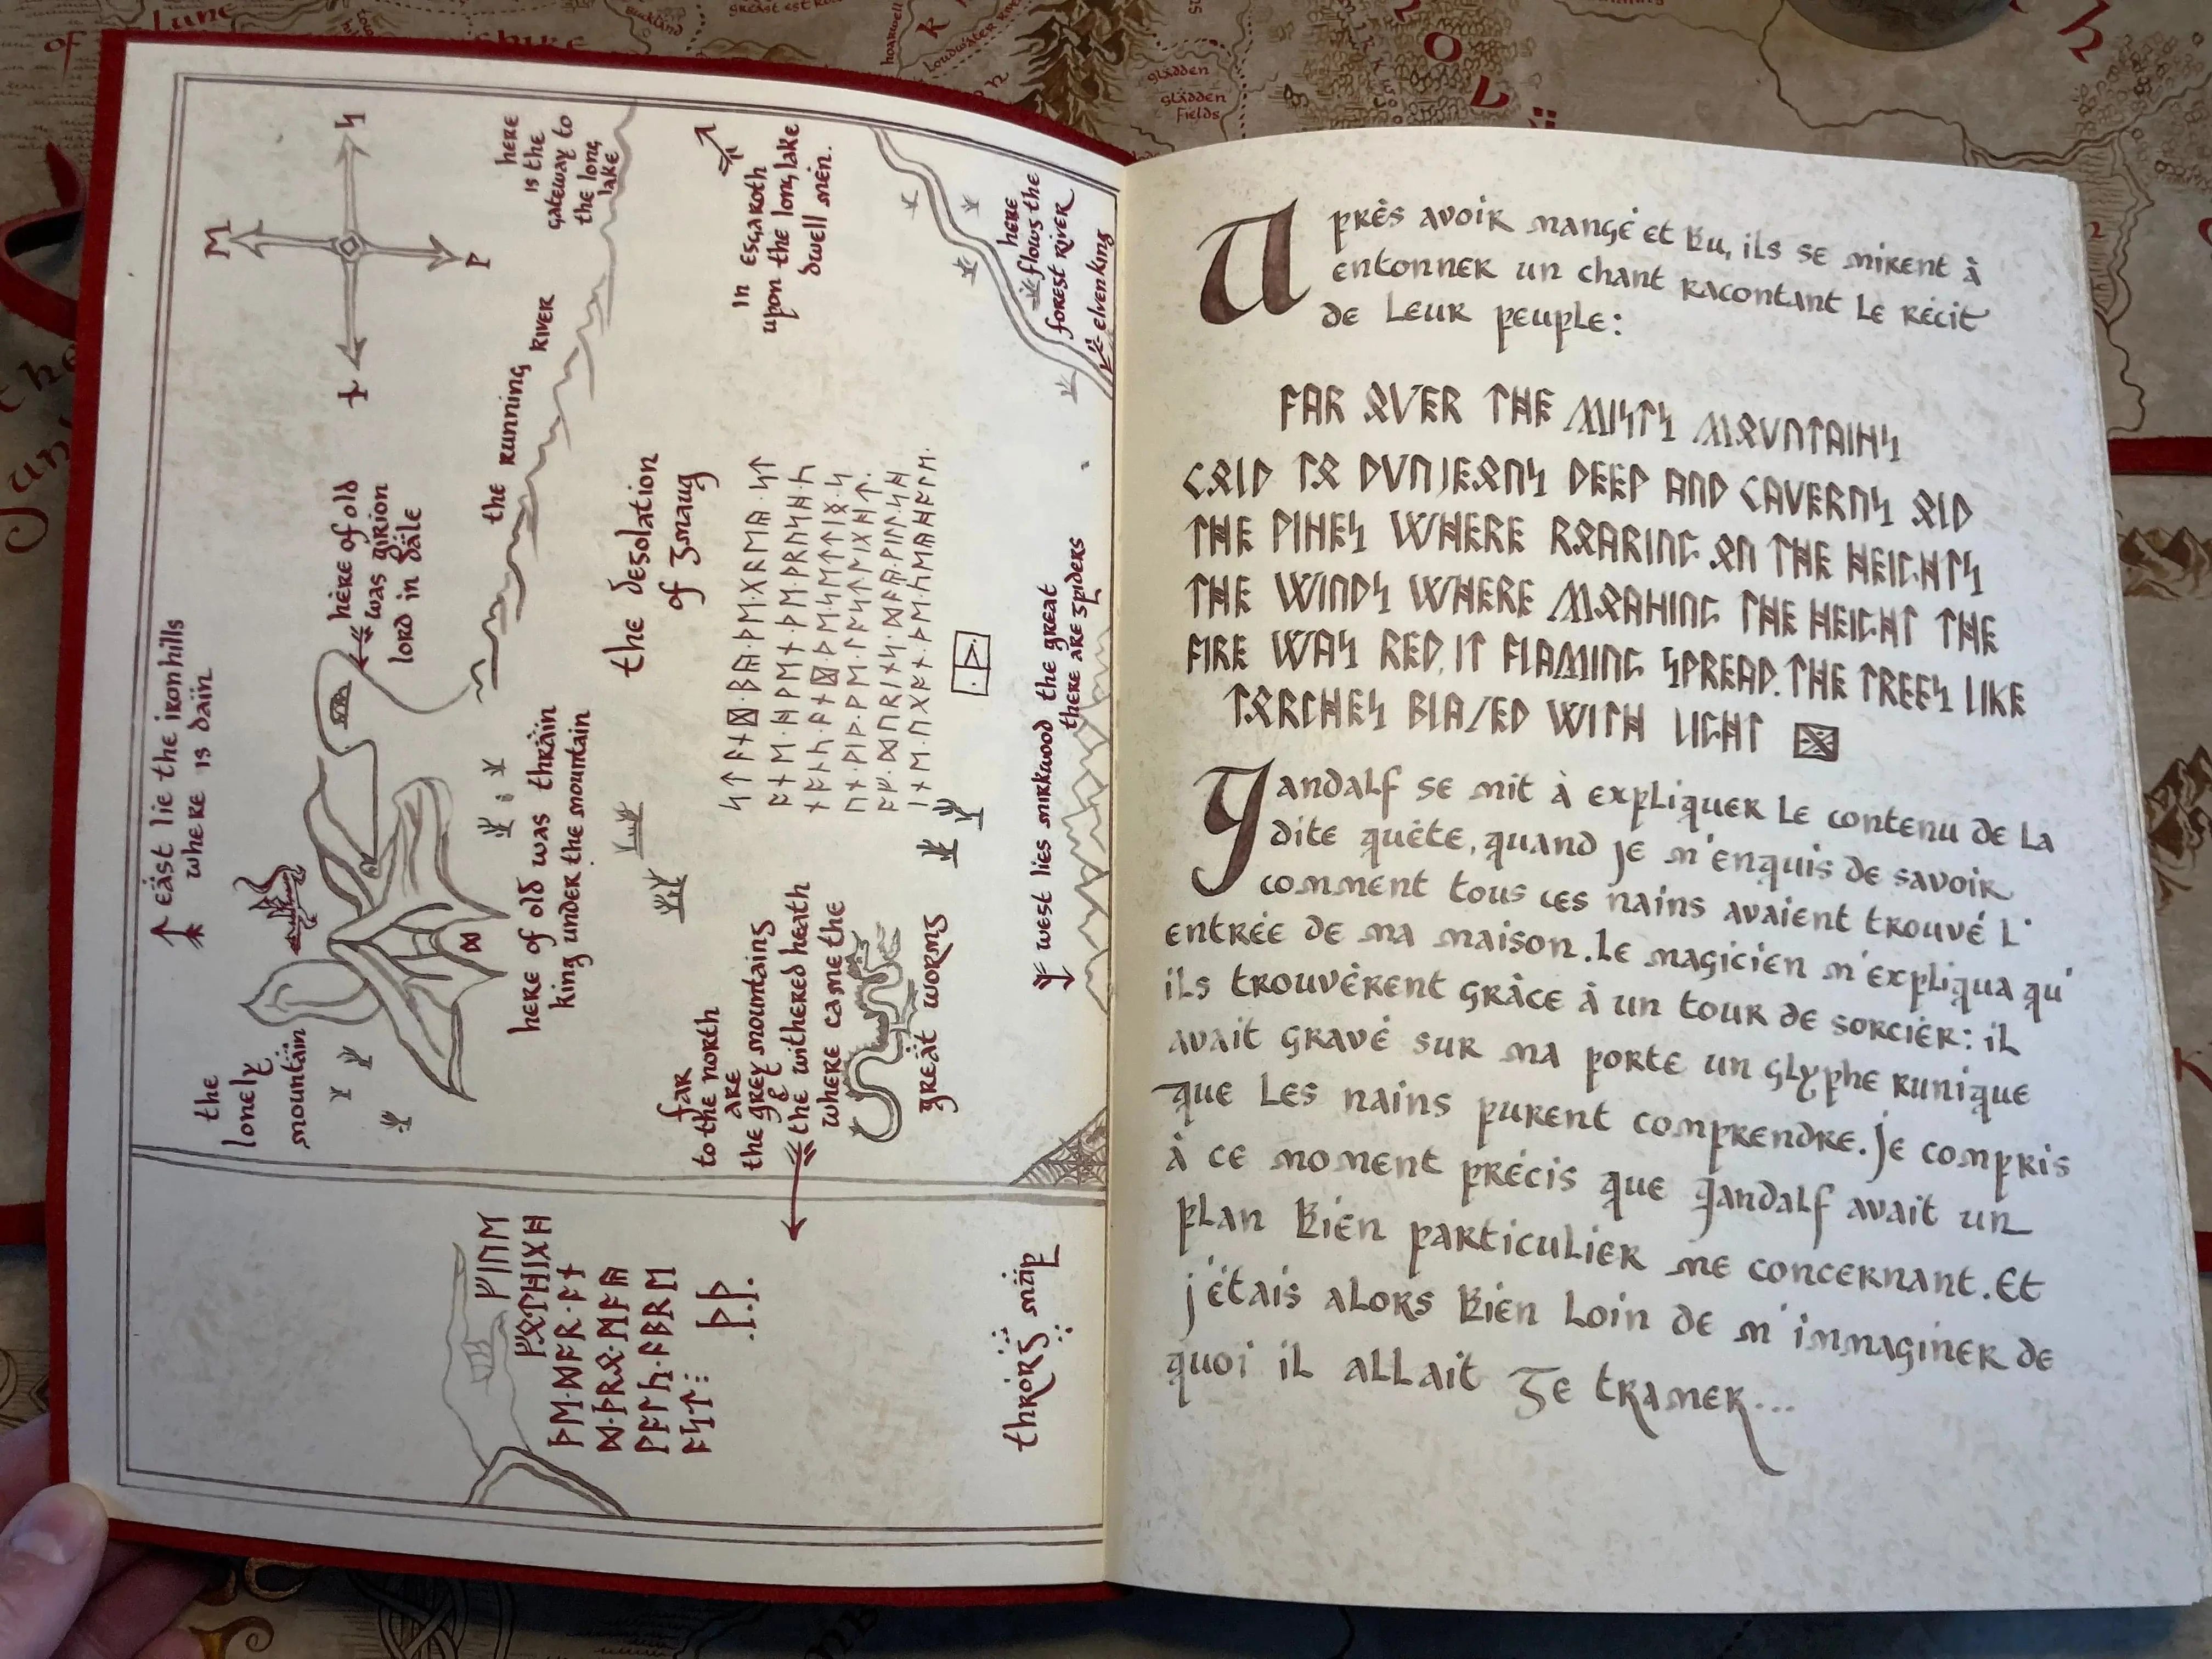 the
lonely
mountain
east lie the iron hills
where is dain
here of old
was girion
lord in dale
here
is the
gateway to
the long
lake
the running
river
here of old was thrain
king under the mountain
the desolation
of smaug
In Esgaroth
upon the long lake
dwell men.
far
to the north
are
the grey mountains
&
the withered heath
where came the
great worms
here
flows the
forest river
elvenking
west lies mirkwood the great
there are spiders
ᚠᛁᚢᛖ
ᚠᚩᛏ ᚻᛁᚷᚻ
ᚦᛖ᛫ᛞᚩᚱ᛫ᚪᚾ
ᛞ᛫ᚦᚱᛟ᛫ᛗᚪᚣ
ᚹᚪᛚᚳ᛫ᚪᛒᚱᛖ
ᚪᛋᛏ
᛫ᚦ᛫ᚦ᛫
thrors map
Après avoir mangé et bu, ils se mirent à
entonner un chant racontant le récit
de leur peuple:
FAR OVER THE MISTY MOUNTAINS
COLD TO DUNJEONS DEEP AND CAVERNS OLD
THE PINES WHERE ROARING ON THE HEIGHTS
THE WINDS WHERE MOANING THE HEIGHT THE
FIRE WAS RED, IT FLAMING SPREAD. THE TREES LIKE
TORCHES BLAZED WITH LIGHT
Gandalf se mit à expliquer le contenu de la
dite quête, quand je m'enquis de savoir
comment tous ces nains avaient trouvé l'
entrée de ma maison. Le magicien m'expliqua qu'
ils trouvèrent grâce à un tour de sorcier: il
avait gravé sur ma porte un glyphe runique
que les nains purent comprendre. Je compris
à ce moment précis que Gandalf avait un
plan bien particulier me concernant. Et
j'étais alors bien loin de m'immaginer de
quoi il allait se tramer...